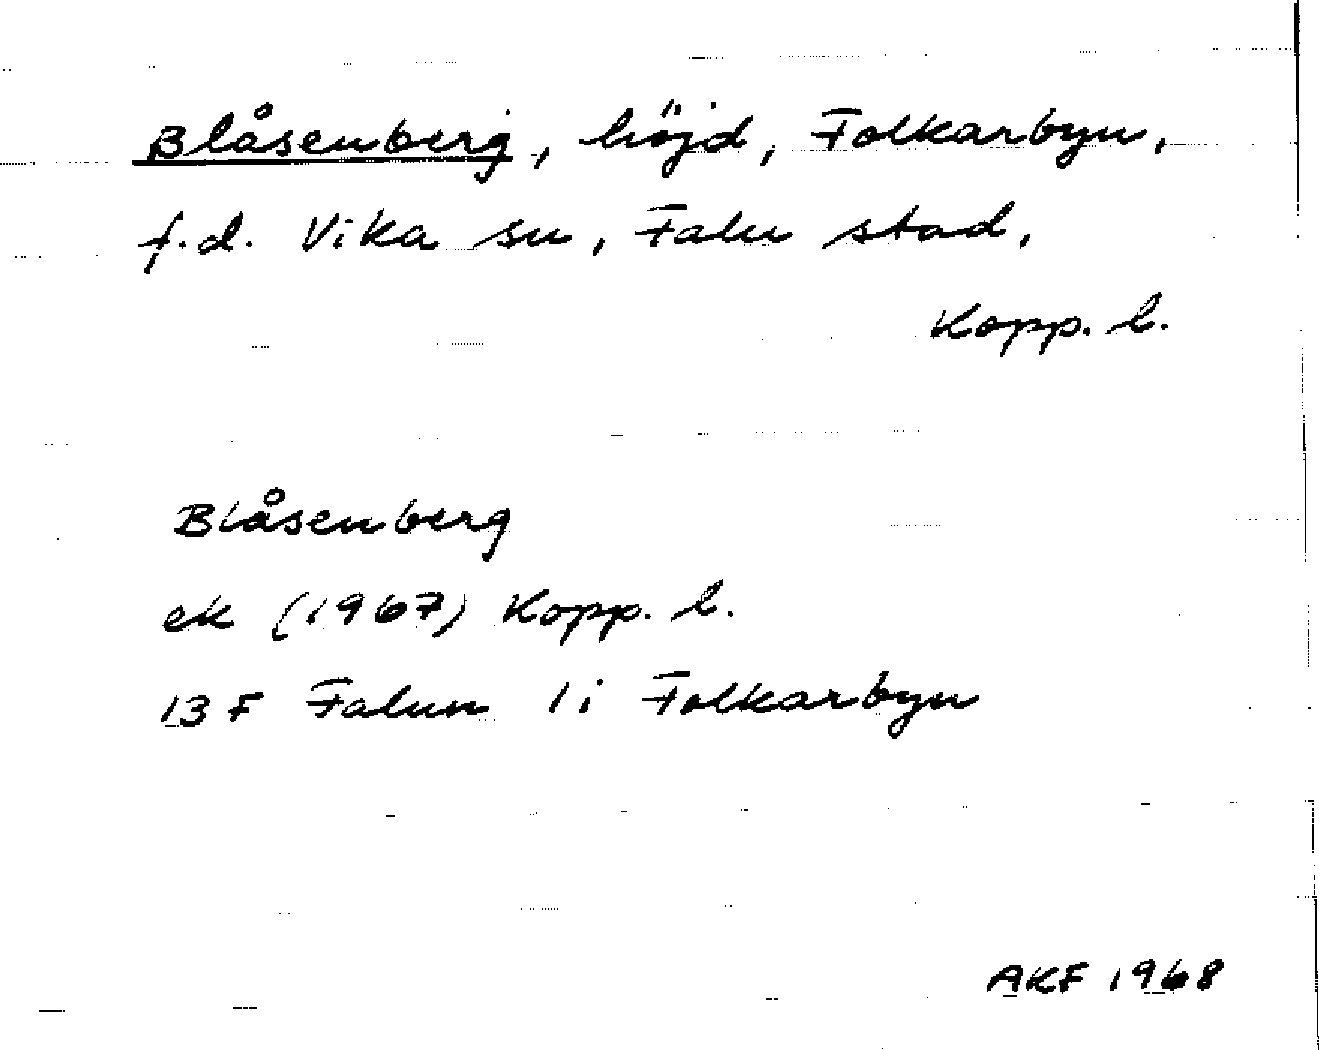 Blåsenberg, höjd, Folkarbyn,
f.d. Vika sn, Falu stad,
Kopp. l.
Blåsenberg
ek (1967) Kopp. l.
13 F Falun 1 i Folkarbyn
AKF 1968